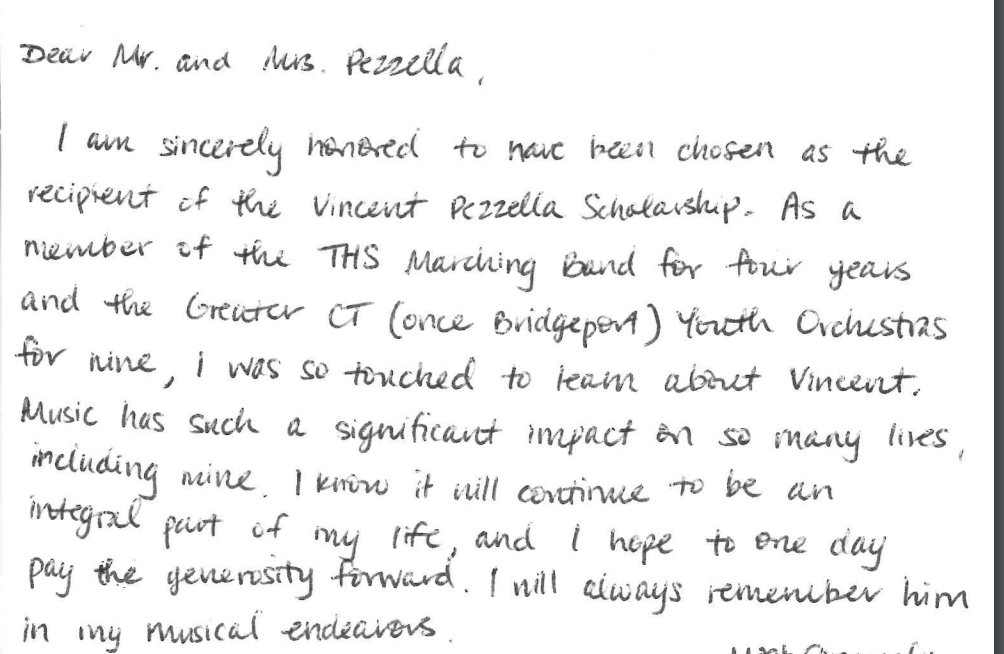 Dear Mr. and Mrs. Pezzella,
I am sincerely honored to have been chosen as the
recipient of the Vincent Pezzella Scholarship. As a
member of the THS Marching Band for four years
and the Greater CT (once Bridgeport) Youth Orchestras
for nine, I was so touched to learn about Vincent.
Music has such a significant impact on so many lives,
including mine. I know it will continue to be an
integral part of my life, and I hope to one day
pay the generosity forward. I will always remember him
in my musical endeavors.